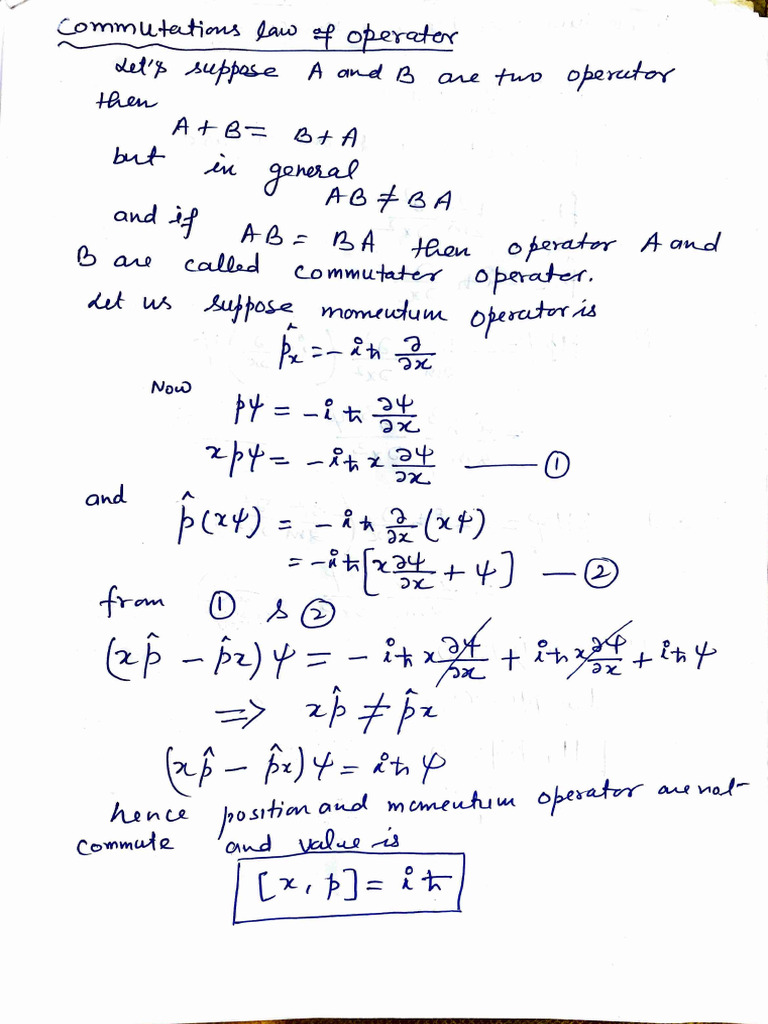 Commutations law of operator
Let's suppose A and B are two operator
then
A + B = B + A
but in general
AB ≠ BA
and if AB = BA then operator A and
B are called commutater operater.
Let us suppose momentum operator is
p̂ₓ = -iħ ∂/∂x
Now
pψ = -iħ ∂ψ/∂x
xpψ = -iħx ∂ψ/∂x —— ①
and p̂(xψ) = -iħ ∂/∂x (xψ)
= -iħ[x ∂ψ/∂x + ψ] — ②
from ① & ②
(xp̂ - p̂x)ψ = -iħx ∂ψ/∂x + iħx ∂ψ/∂x + iħψ
=> xp̂ ≠ p̂x
(xp̂ - p̂x)ψ = iħψ
hence position and momentum operator are not
commute and value is
[x, p] = iħ